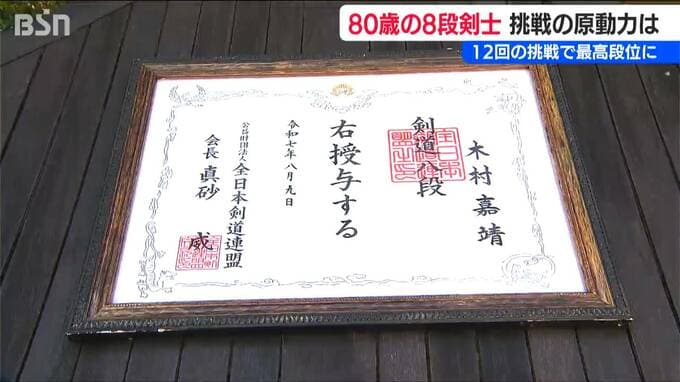 BSN
80歳の8段剣士 挑戦の原動力は
12回の挑戦で最高段位に
木村嘉靖
剣道八段
右授与する
令和七年八月九日
公益財団法人 全日本剣道連盟
会長 真砂 威